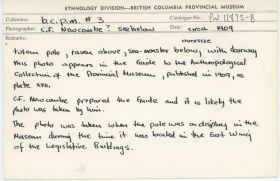 ETHNOLOGY DIVISION—BRITISH COLUMBIA PROVINCIAL MUSEUM
Collection: b.c.p.m. # 3 Catalogue No.: PN 11872-B
Photographer: C.F. Newcombe? see below Date: circa 1909
Remarks: oversize
totem pole, raven above, sea-monster below, with doorway
this photo appears in the Guide to the Anthropological
Collection of the Provincial Museum, published in 1909, as
plate XVII.
C.F. Newcombe prepared the Guide and it is likely the
photo was taken by him.
The photo was taken when the pole was on display in the
Museum during the time it was located in the East Wing
of the Legislative Buildings.